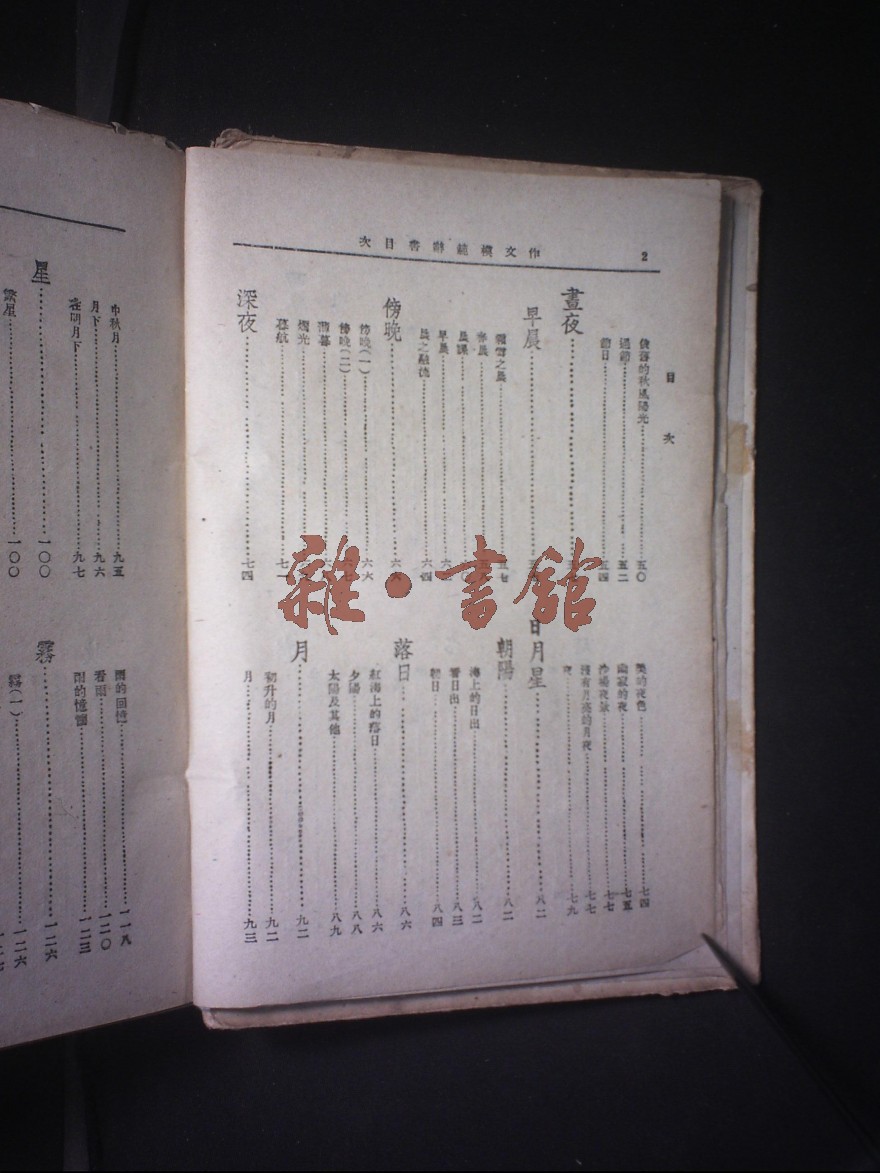 作文模範辭書目次
2
目次
俊落的秋風陽光 五〇
過節 五二
節日 五四
晝夜
早晨
春晨
早晨
晨之融洩 六四
傍晚 六六
傍晚(一) 六六
傍晚(二)
薄暮
燭光
暮航 七一
深夜 七四
美的夜色 七四
幽寂的夜 七五
沙場夜 七七
沒有月亮的月夜 七七
夜 七九
日月星 八二
朝陽 八二
海上的日出 八二
看日出 八三
朝日 八四
落日 八六
紅海上的落日 八六
夕陽 八八
太陽及其他 八九
月 九二
初升的月 九二
月 九三
中秋月 九五
月下 九六
月下 九七
星 一〇〇
繁星 一〇〇
雨的回憶 一一八
看雨 一二〇
雨的憶 一二三
霧 一二六
霧(一) 一二六
雜·書館